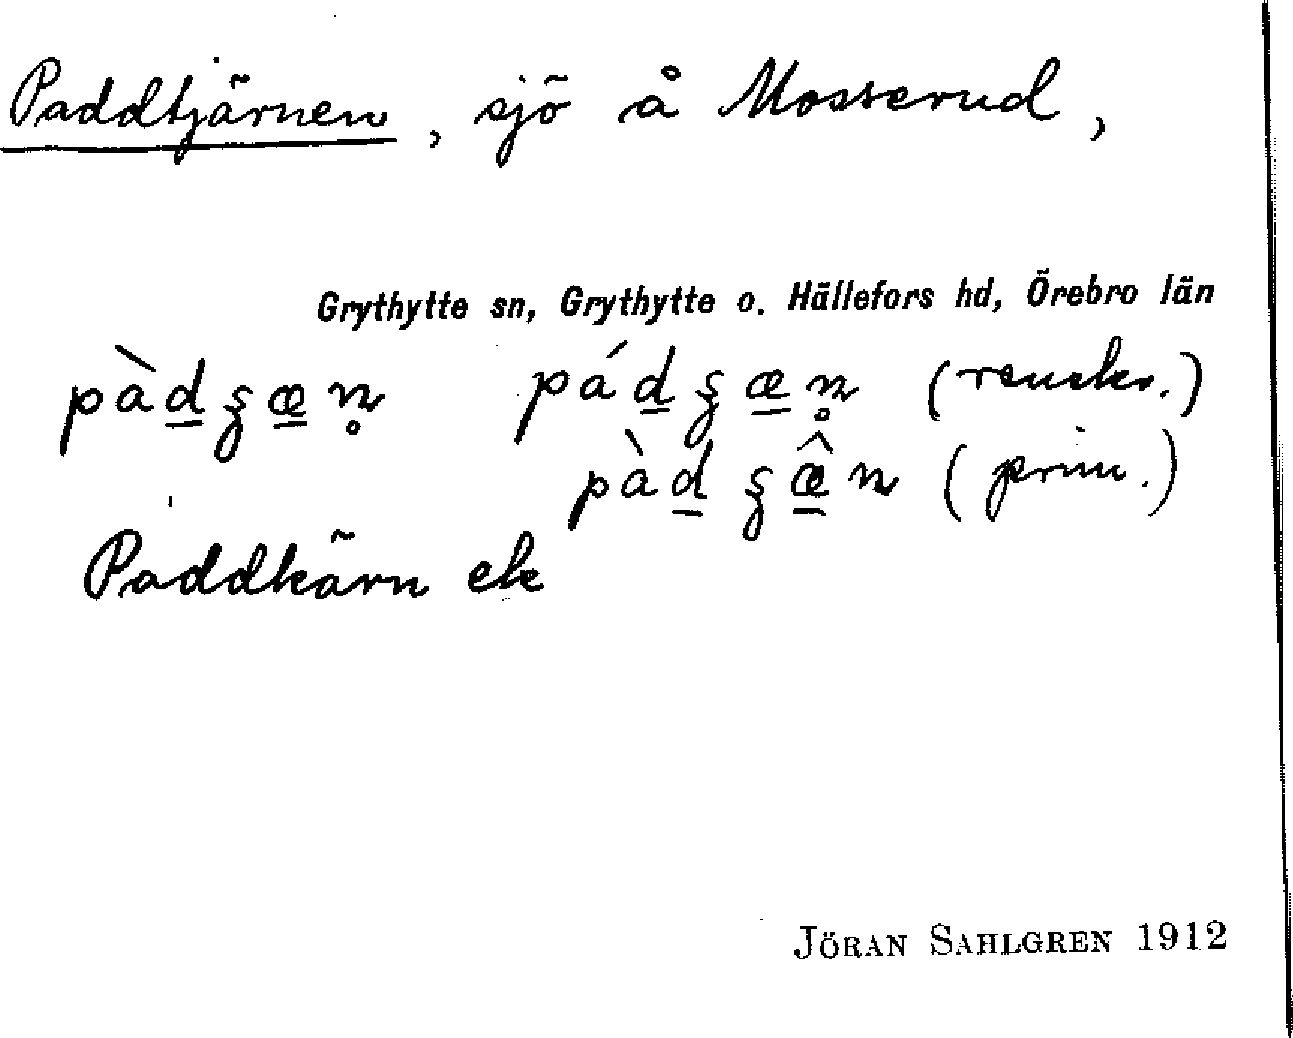 Paddtjärnen, sjö å Mosserud,
Grythytte sn, Grythytte o. Hällefors hd, Örebro län
pàd̲ʒæ̲n̥ pád̲ʒæ̲n̥ (
pàd̲ ʒæ̲̂n (prim.)
Paddkärn ek
JÖRAN SAHLGREN 1912